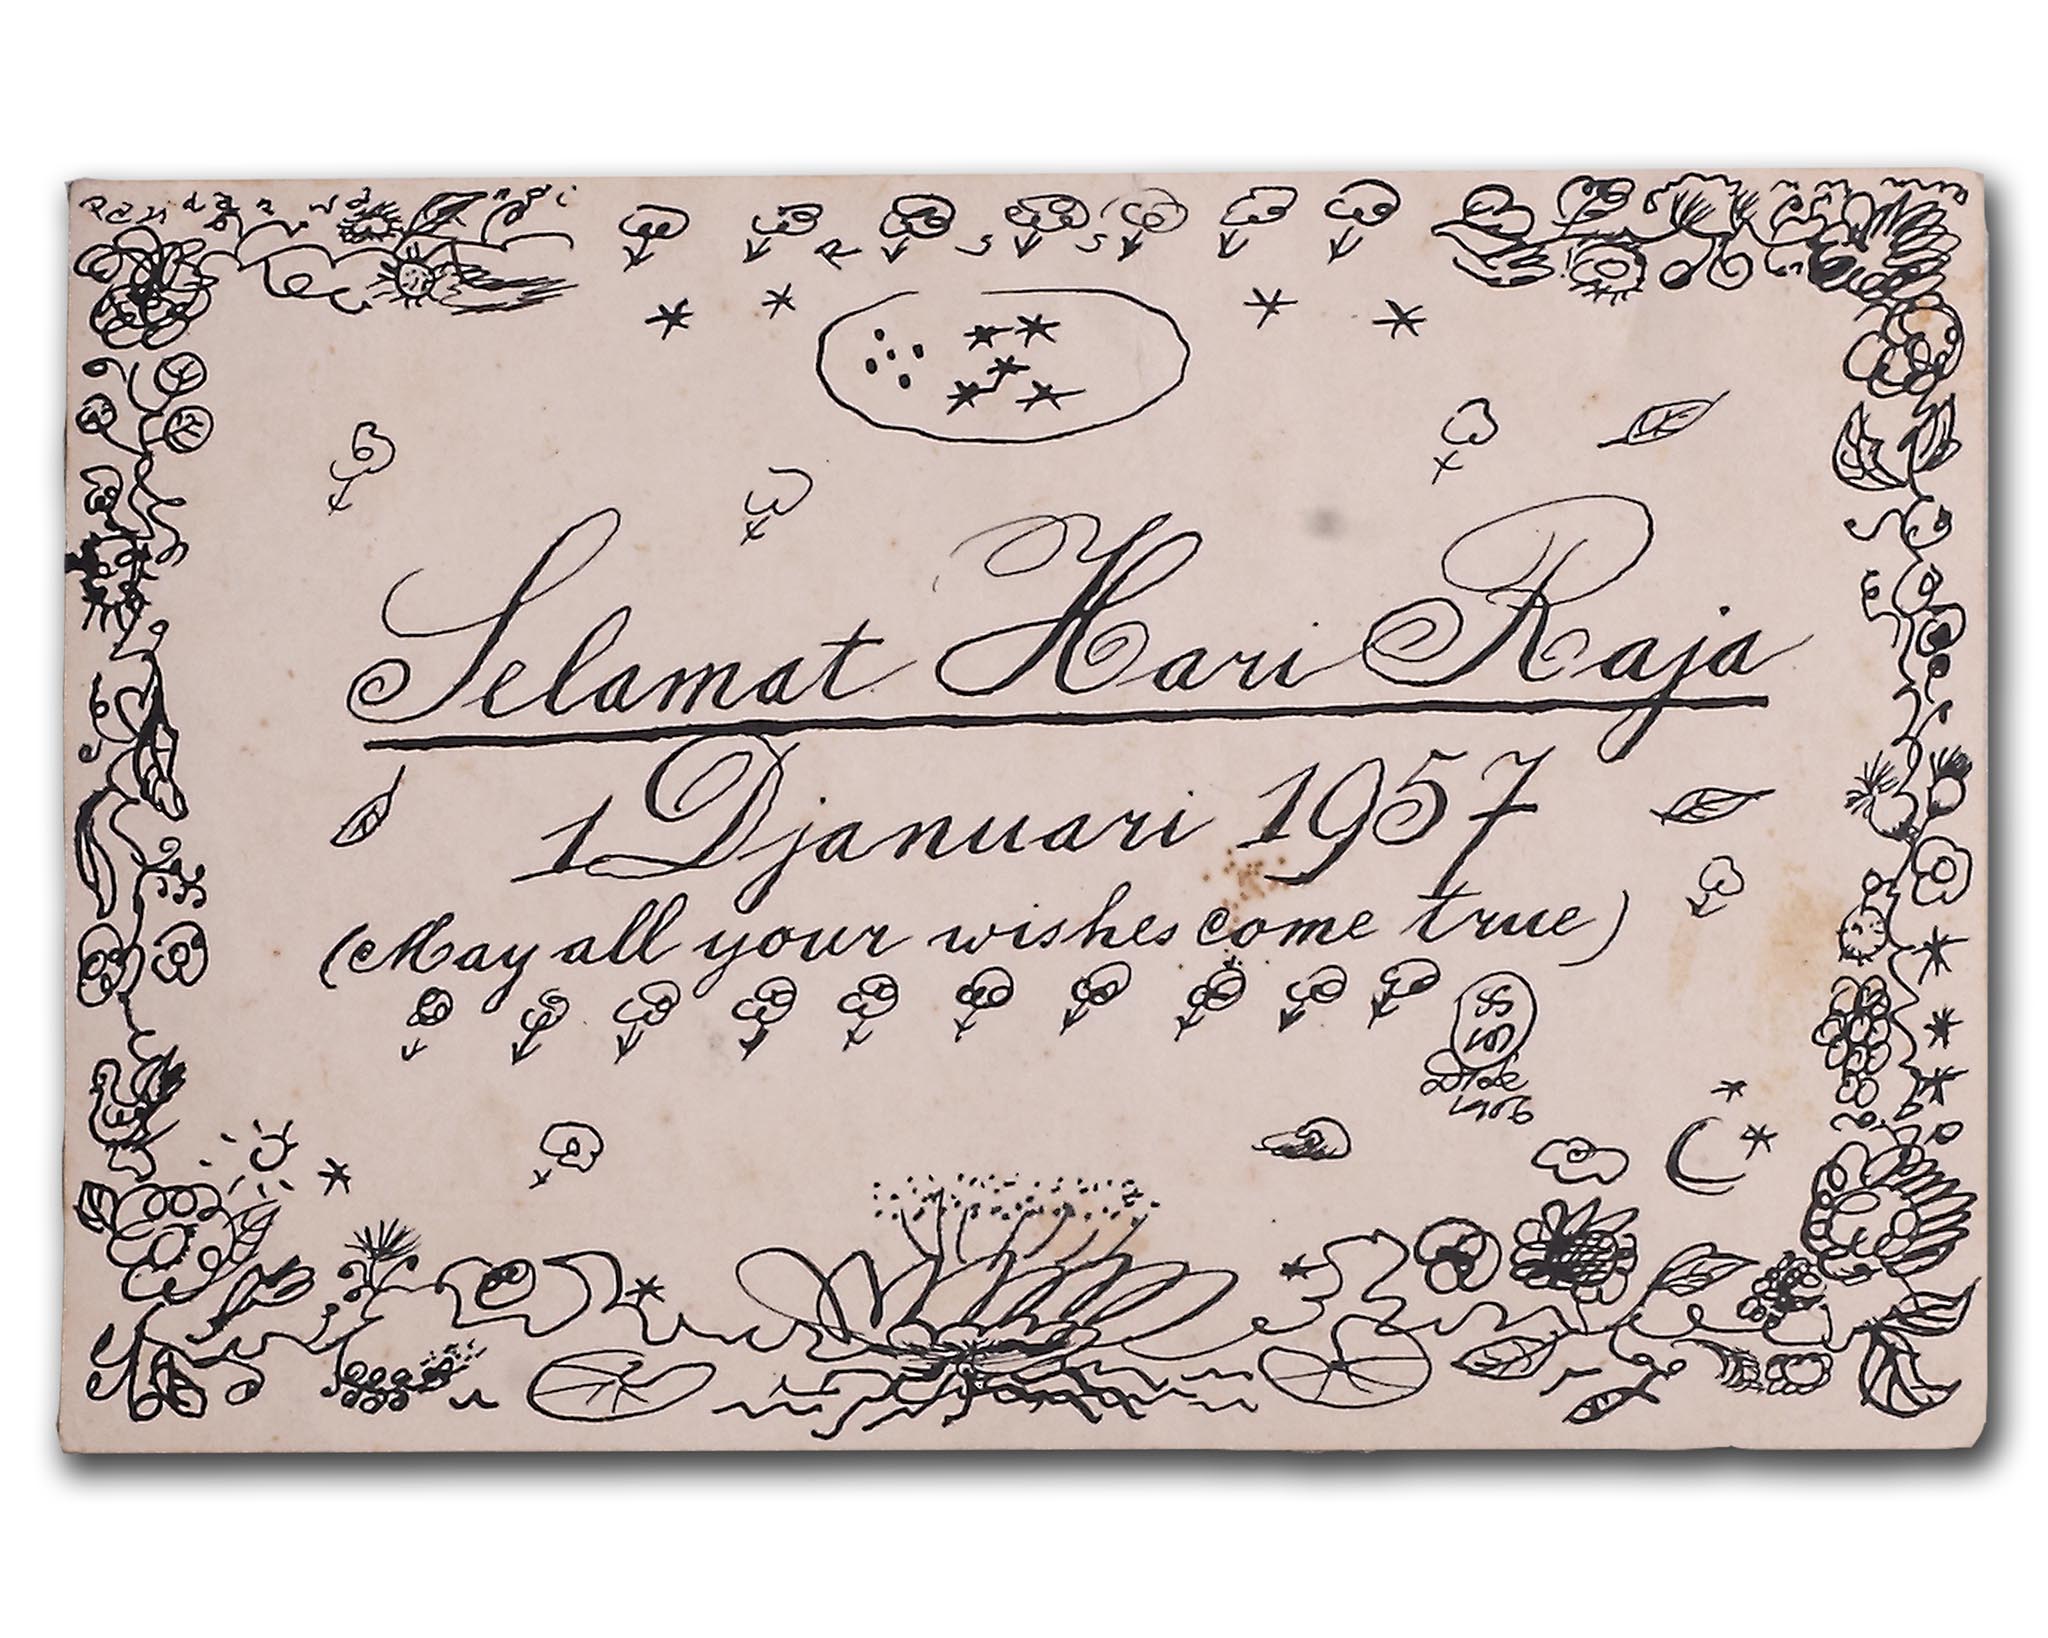 Pandan wangi
Selamat Hari Raja
1 Djanuari 1957
(May all your wishes come true)